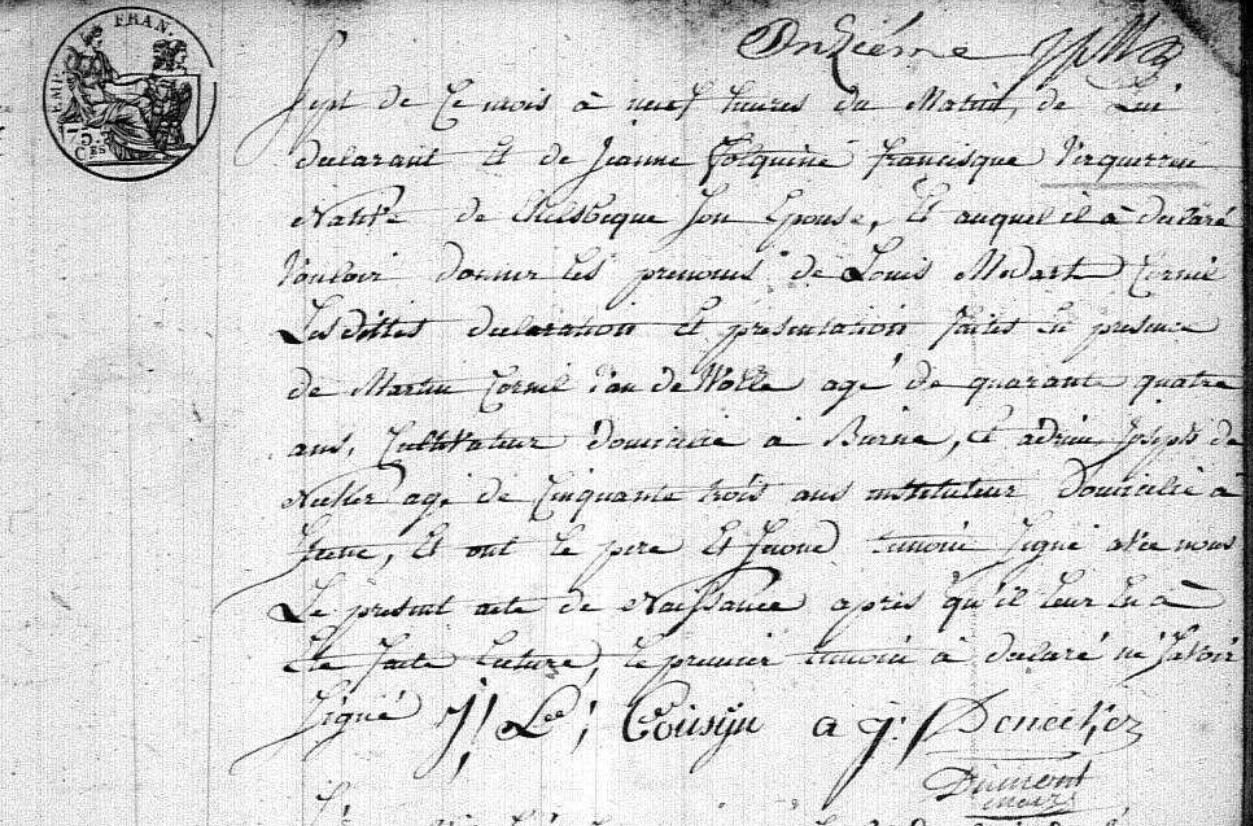 EMP. FRAN.
75 CES
Onziéme
Sept de Ce mois à neuf heures du Matin, de Lui
declarant Et de Jeanne folquine francisque Verquerrue
Native de Son Epouse, Et auquel il à declaré
Vouloir donner les prenoms de Louis Medart Cornil
Les dittes declaration Et presentation faites En presence
de Martin Cornil Van de Wolle agé de quarante quatre
ans, Cultivateur domicilié à , Et adrien Joseph de
agé de Cinquante trois ans instituteur Domicilié à
, Et ont le pere Et second temoin Signé avec nous
Le present acte de Naissance apres qu'il leur En à
Eté faite Lecture, le premier temoin à declaré ne Savoir
Signé J! Lce; Cousyn a j:
Dumont
maire